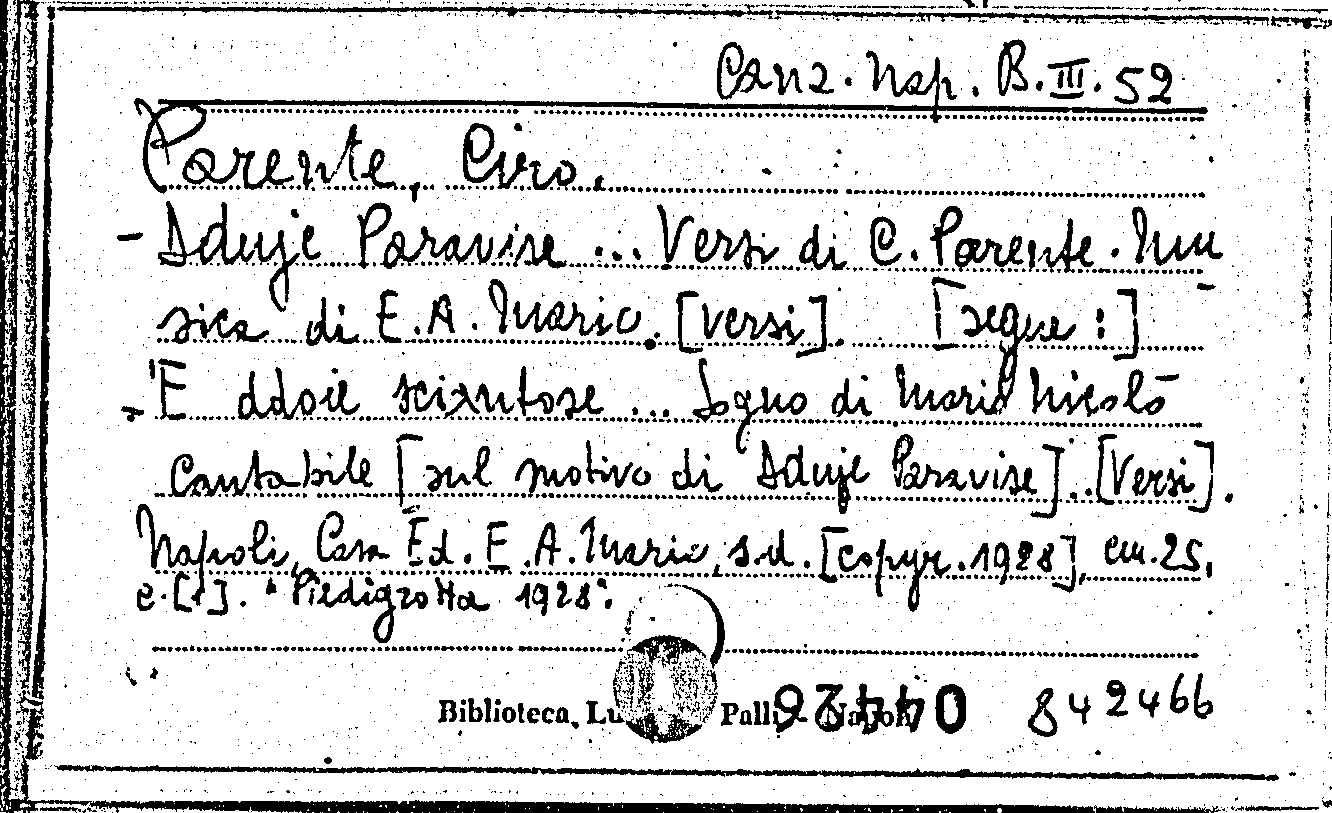 Canz. Nap. B. III. 52
Parente, Ciro.
- Aduje Paravise ... Versi di C. Parente. Mu
sica di E. A. Mario. [Versi]. [segue:]
- 'E ddoie sciantose ... Sogno di Mario Nicolò
Cantabile [sul motivo di Aduje Paravise]. [Versi].
Napoli, Casa Ed. E. A. Mario, s.d. [copyr. 1928], cm. 25,
c. [1]. "Piedigrotta 1928".
Biblioteca Lu Palli - Napoli 044426 842466